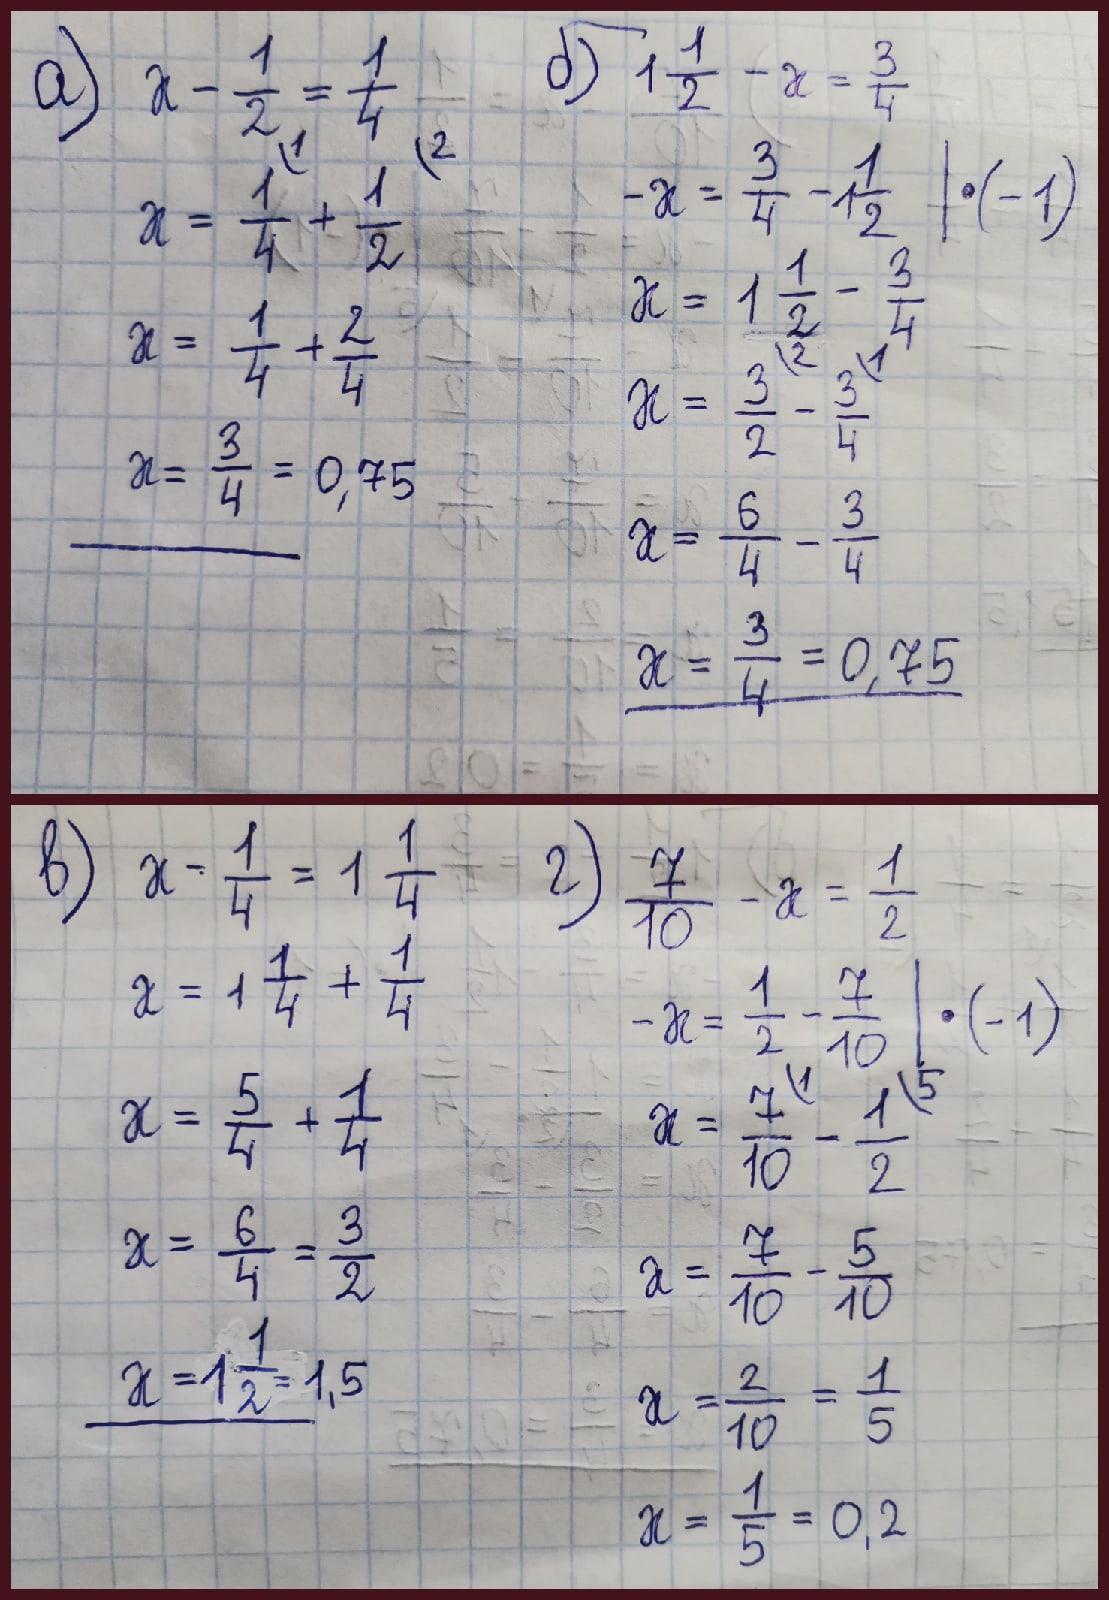 а) x - 1/2 = 1/4
x = 1/4 (1 + 1/2 (2
x = 1/4 + 2/4
x = 3/4 = 0,75
б) 1 1/2 - x = 3/4
-x = 3/4 - 1 1/2 | • (-1)
x = 1 1/2 - 3/4
x = 3/2 (2 - 3/4 (1
x = 6/4 - 3/4
x = 3/4 = 0,75
в) x - 1/4 = 1 1/4
x = 1 1/4 + 1/4
x = 5/4 + 1/4
x = 6/4 = 3/2
x = 1 1/2 = 1,5
г) 7/10 - x = 1/2
-x = 1/2 - 7/10 | • (-1)
x = 7/10 (1 - 1/2 (5
x = 7/10 - 5/10
x = 2/10 = 1/5
x = 1/5 = 0,2